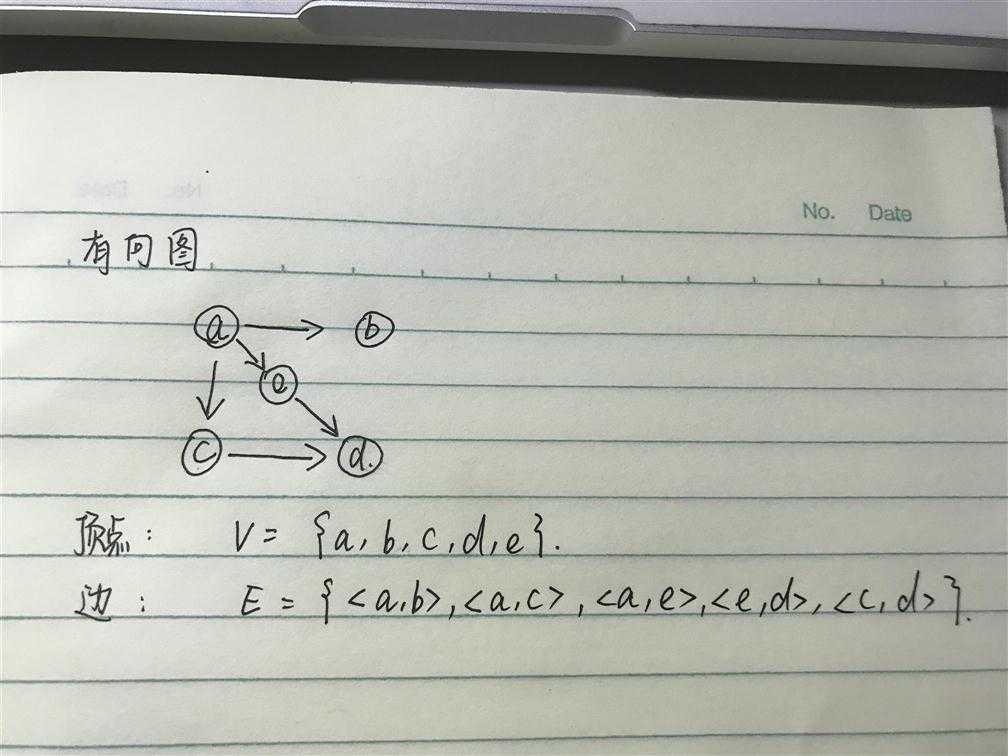 No. Date
有向图
a b
e
c d.
顶点: V = {a, b, c, d, e}.
边: E = {<a,b>,<a,c>,<a,e>,<e,d>,<c,d>}.